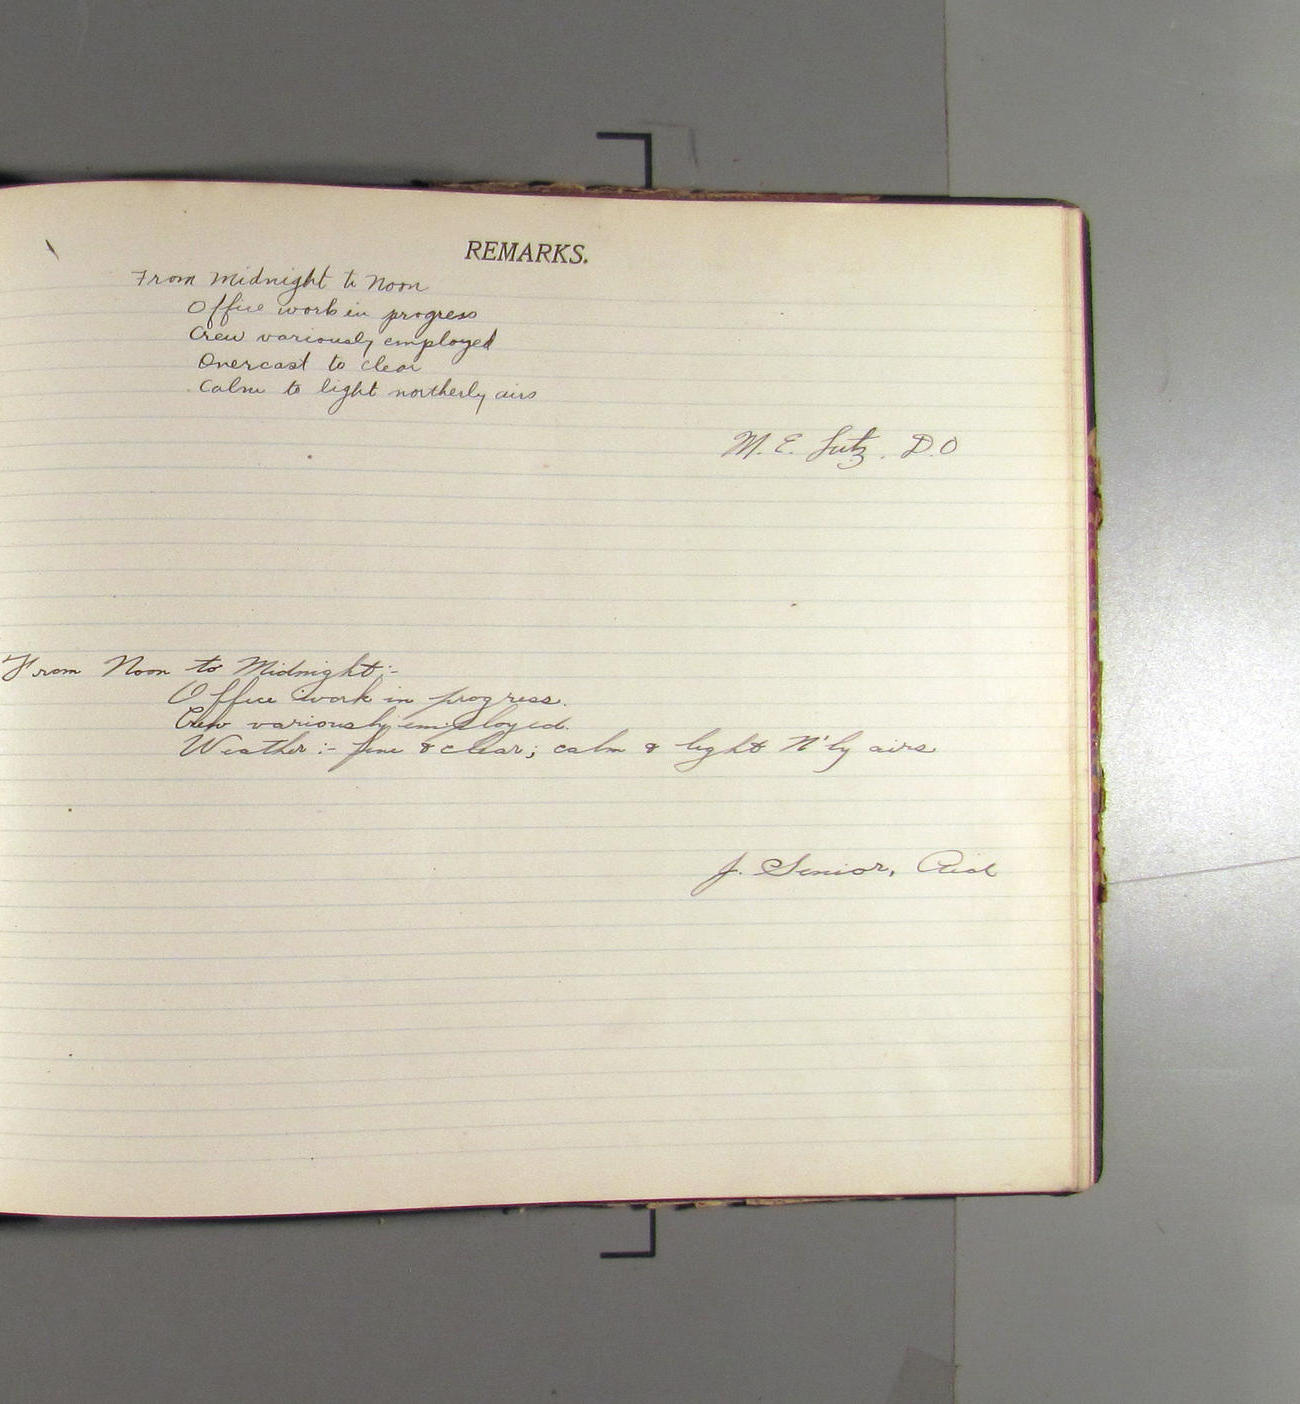 REMARKS.
From Midnight to Noon
Office work in progress
Crew variously employed
Overcast to clear
Calm to light northerly airs
M. E. Lutz. D.O
From Noon to Midnight:-
Office work in progress.
Crew variously employed.
Weather:- fine & clear; calm & light N'ly airs
J. Senior, Aid